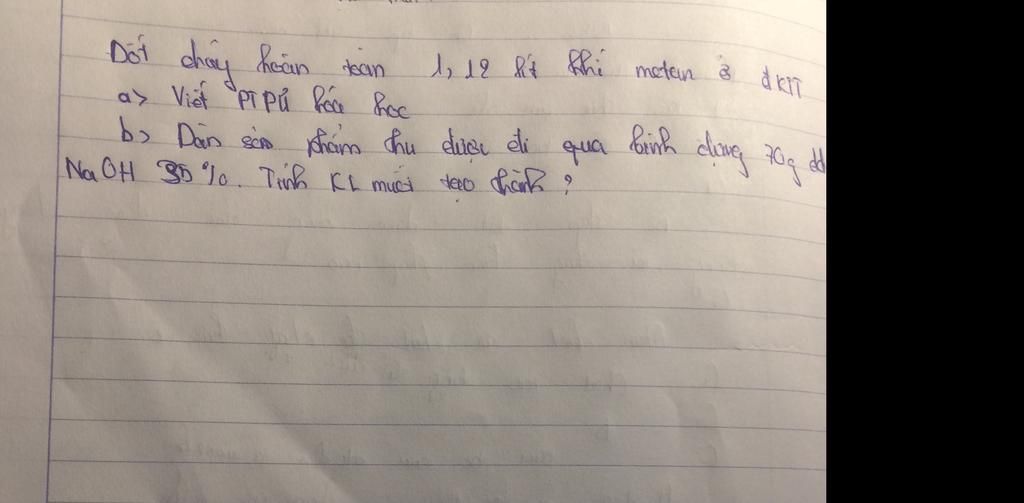 Đốt cháy hoàn toàn 1,12 lít khí metan ở đKTT
a> Viết PTPỨ hóa học
b> Dẫn sản phẩm thu được đi qua bình đựng 70g dd
NaOH 35%. Tính KL muối tạo thành?